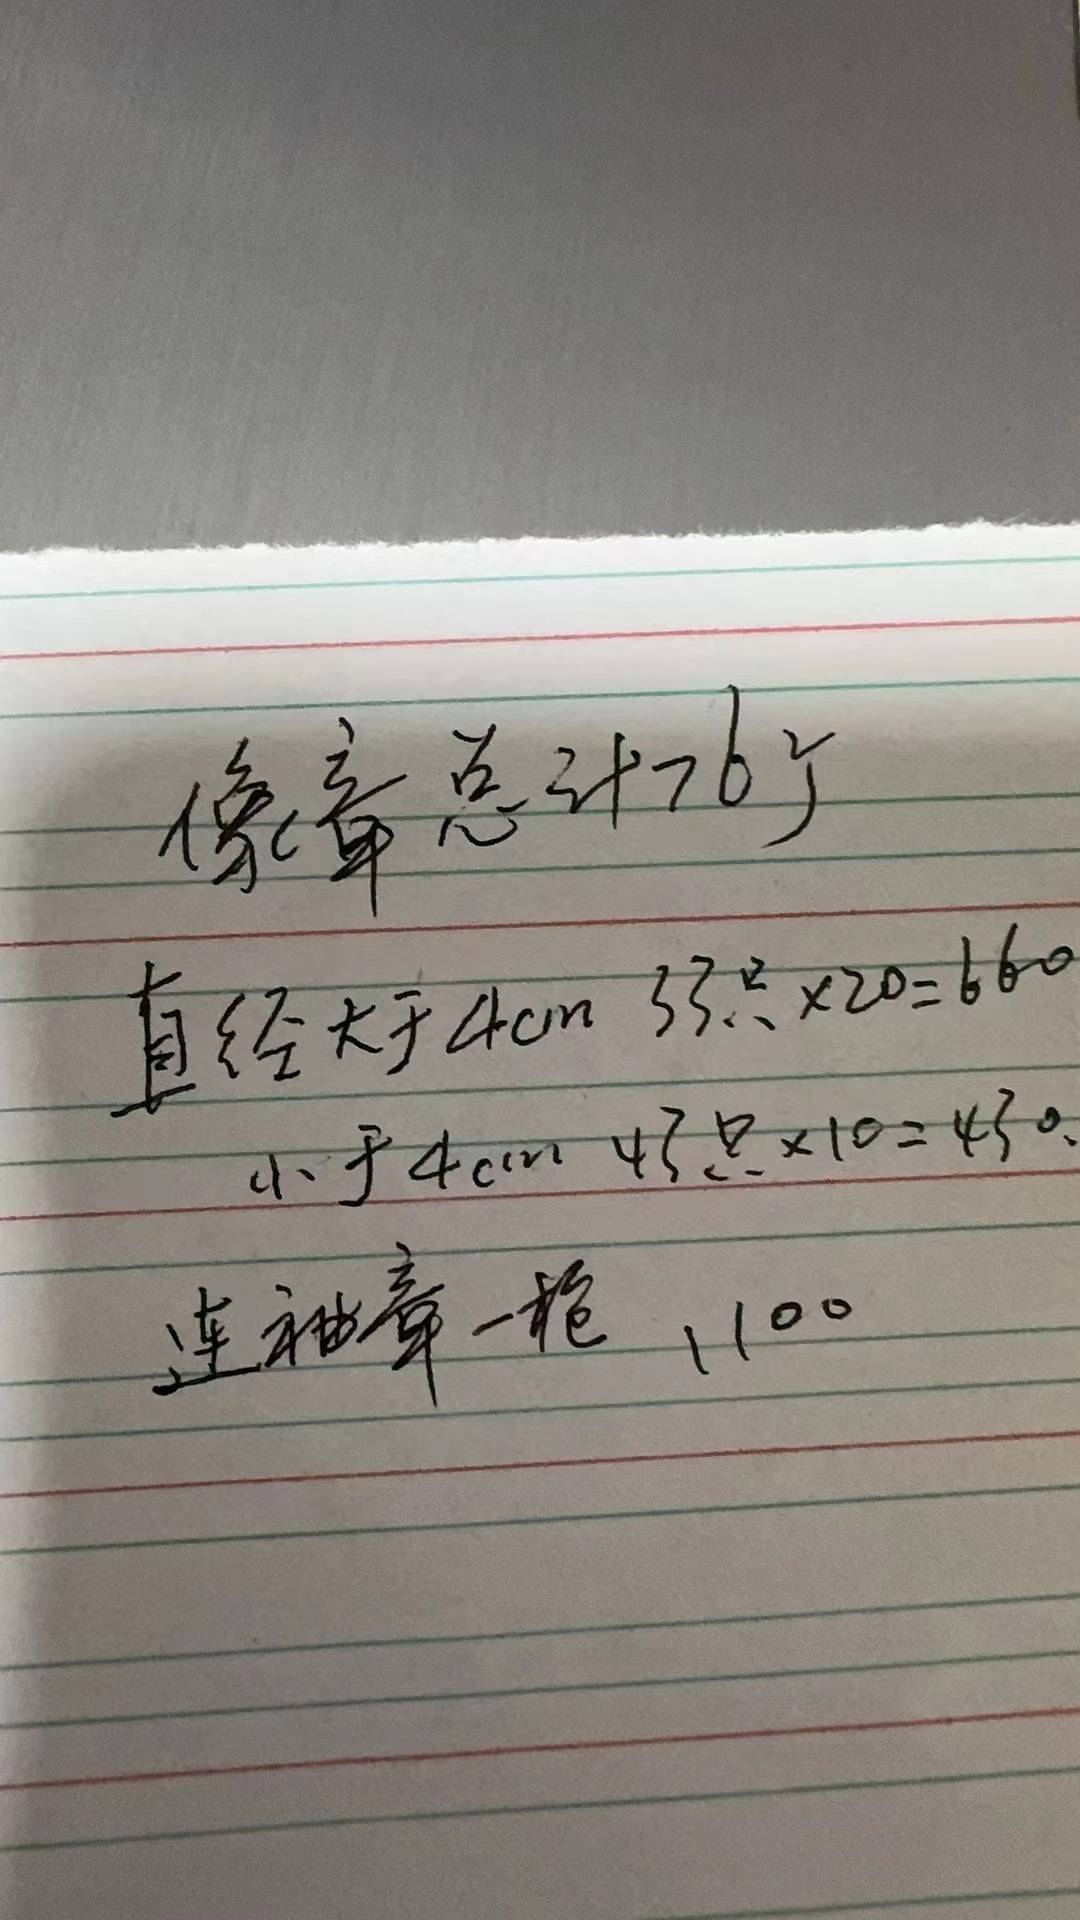 像章总计76个
直径大于4cm 33只×20=660
小于4cm 43只×10=430.
连袖章一枪、1100